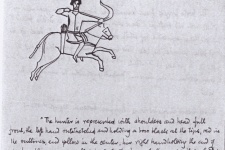 "The hunter is represented with shoulders and head full
front, the left hand outstretched and holding a bow black at the tips, red in
the outlines, and yellow in the center, his right hand holding the end of